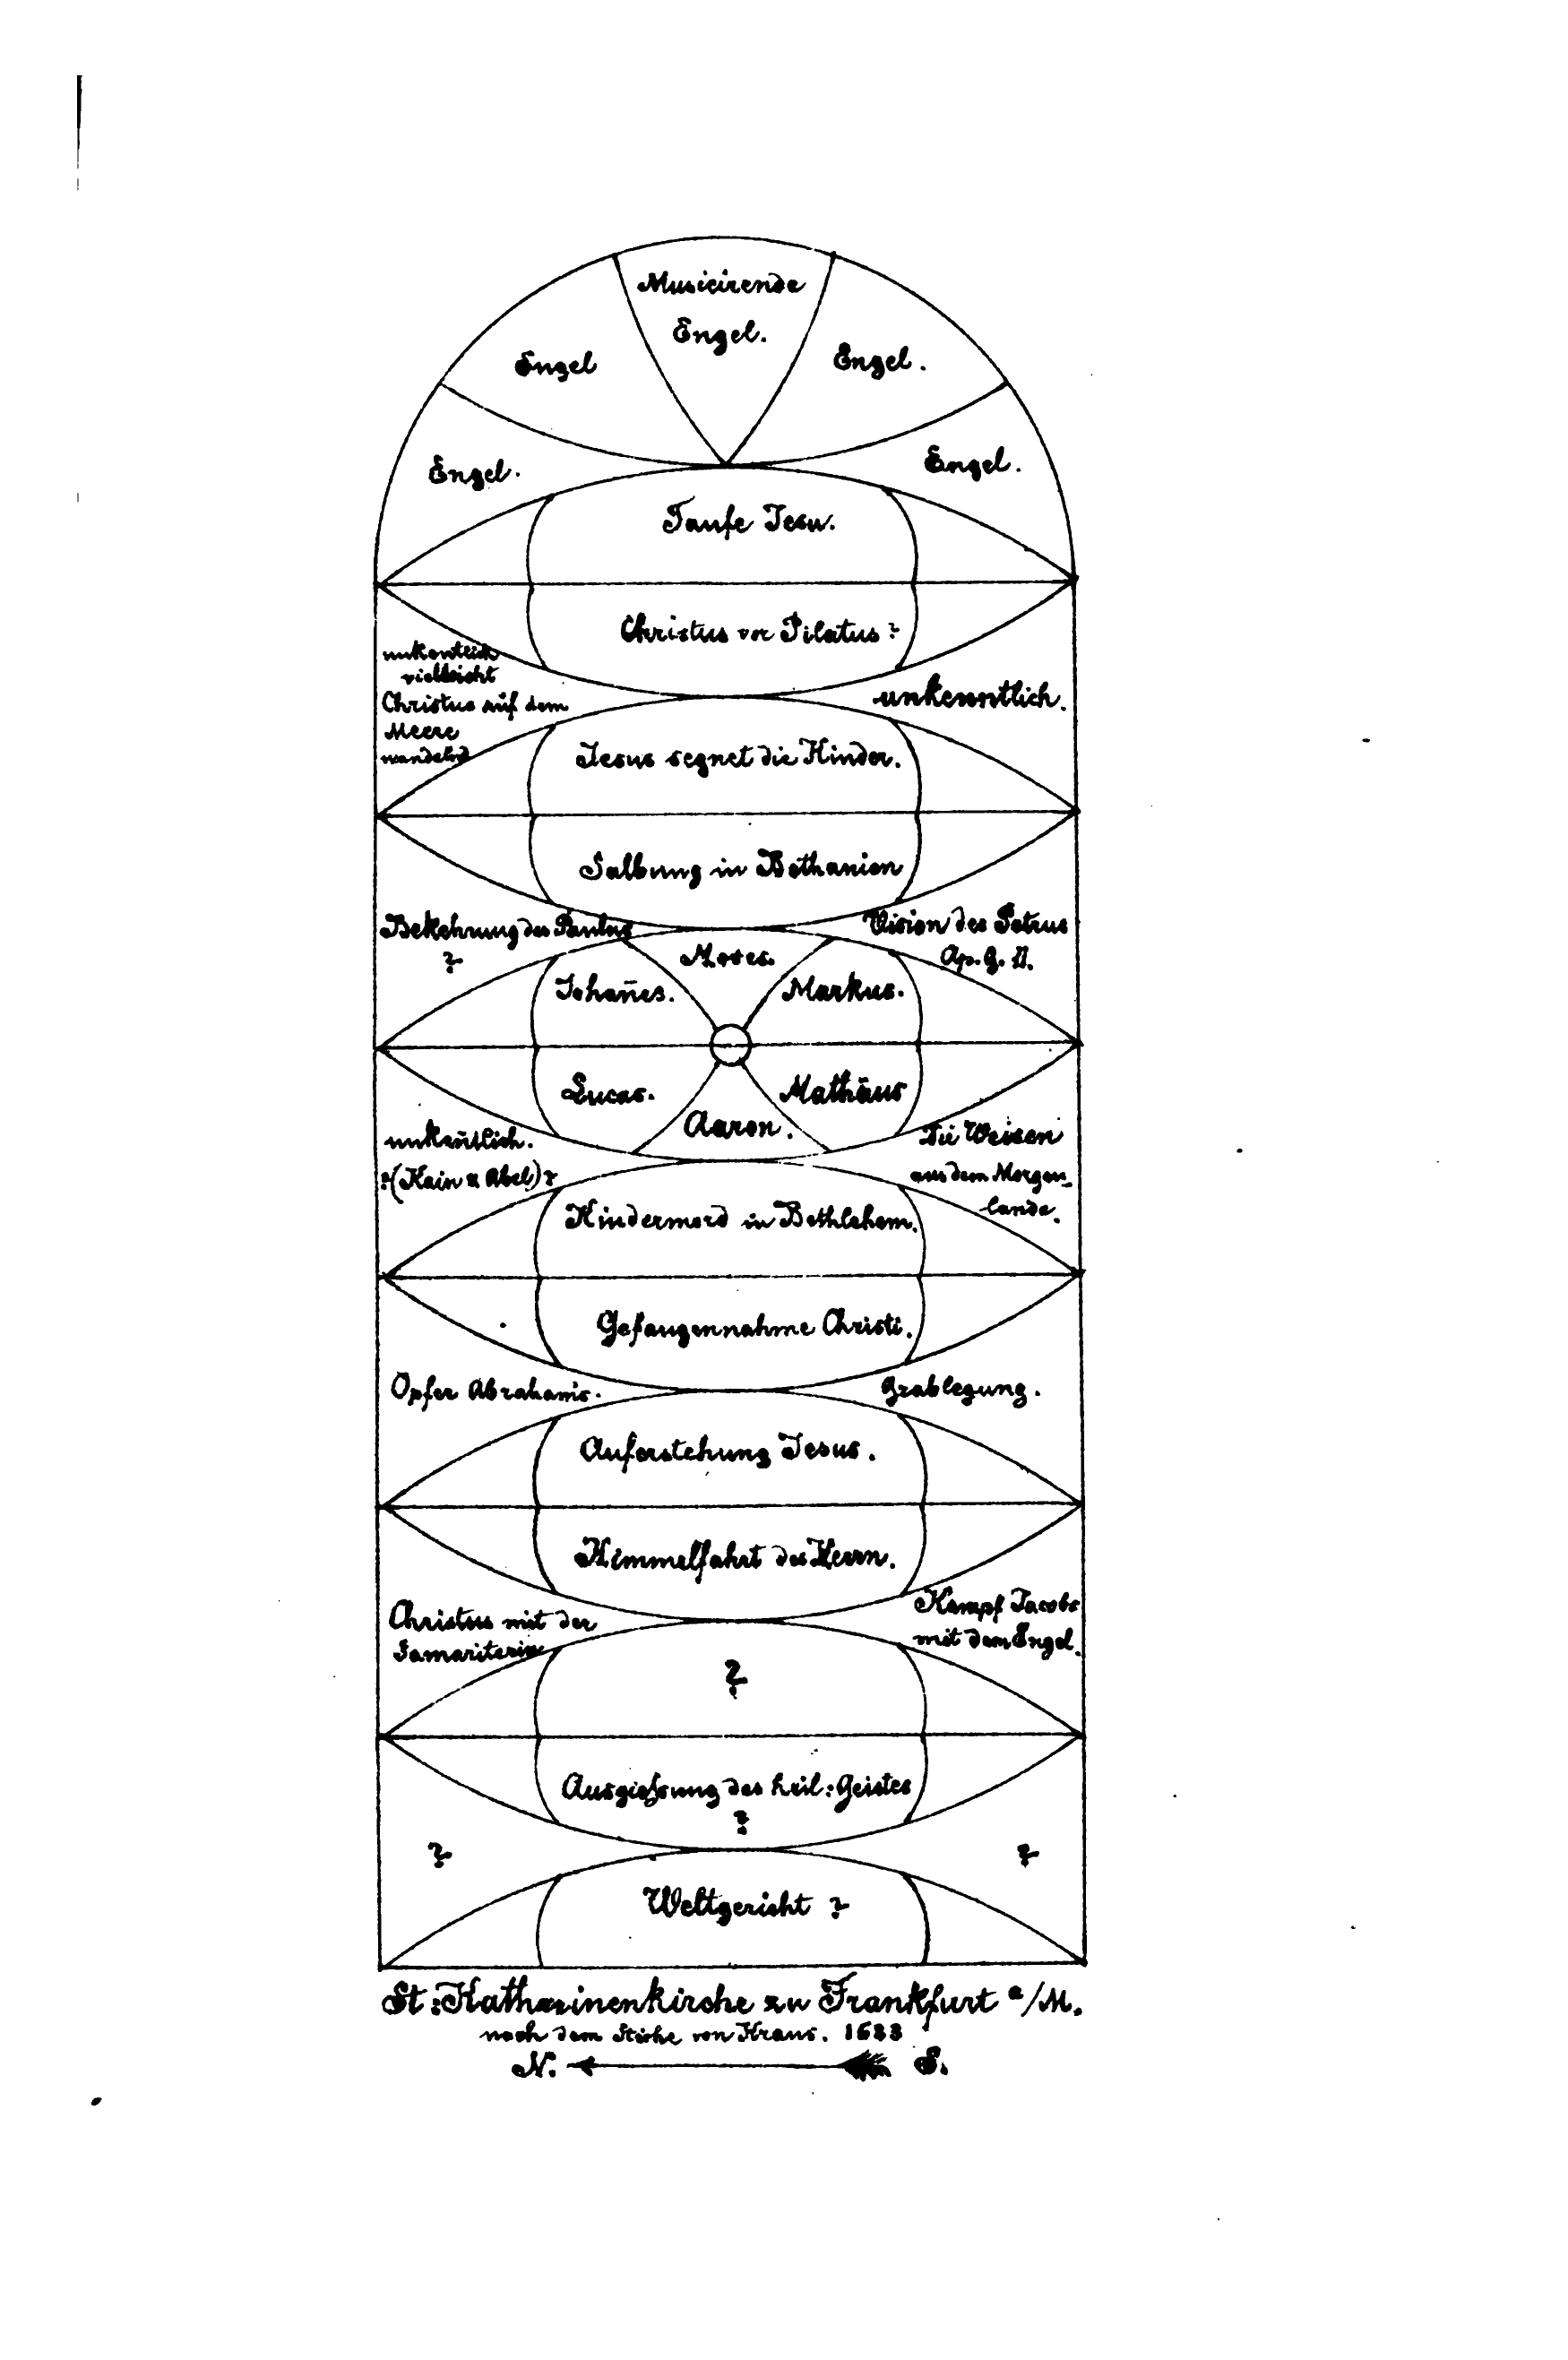 Musicirende
Engel.
Engel
Engel.
Engel.
Engel.
Taufe Jesu.
Christus vor Pilatus?
unkentlich
vielleicht
Christus auf dem
Meere
wandelnd
unkenntlich.
Jesus segnet die Kinder.
Salbung in Bethanien
Bekehrung des Paulus
?
Vision des Petrus
Ap. G. 11.
Moses.
Johañes.
Markus.
Lucas.
Mathäus
Aaron.
unkeñtlich.
?(Kain u Abel)?
Die Weisen
aus dem Morgen-
lande.
Kindermord in Bethlehem.
Gefangennahme Christi.
Opfer Abrahams.
Grablegung.
Auferstehung Jesus.
Himmelfahrt des Herrn.
Christus mit der
Samariterin
Kampf Jacobs
mit dem Engel.
?
Ausgießung des heil: Geistes
?
?
?
Weltgericht ?
St: Katharinenkirche zu Frankfurt a/M.
nach dem Stiche von Kraus. 1683
N. S.